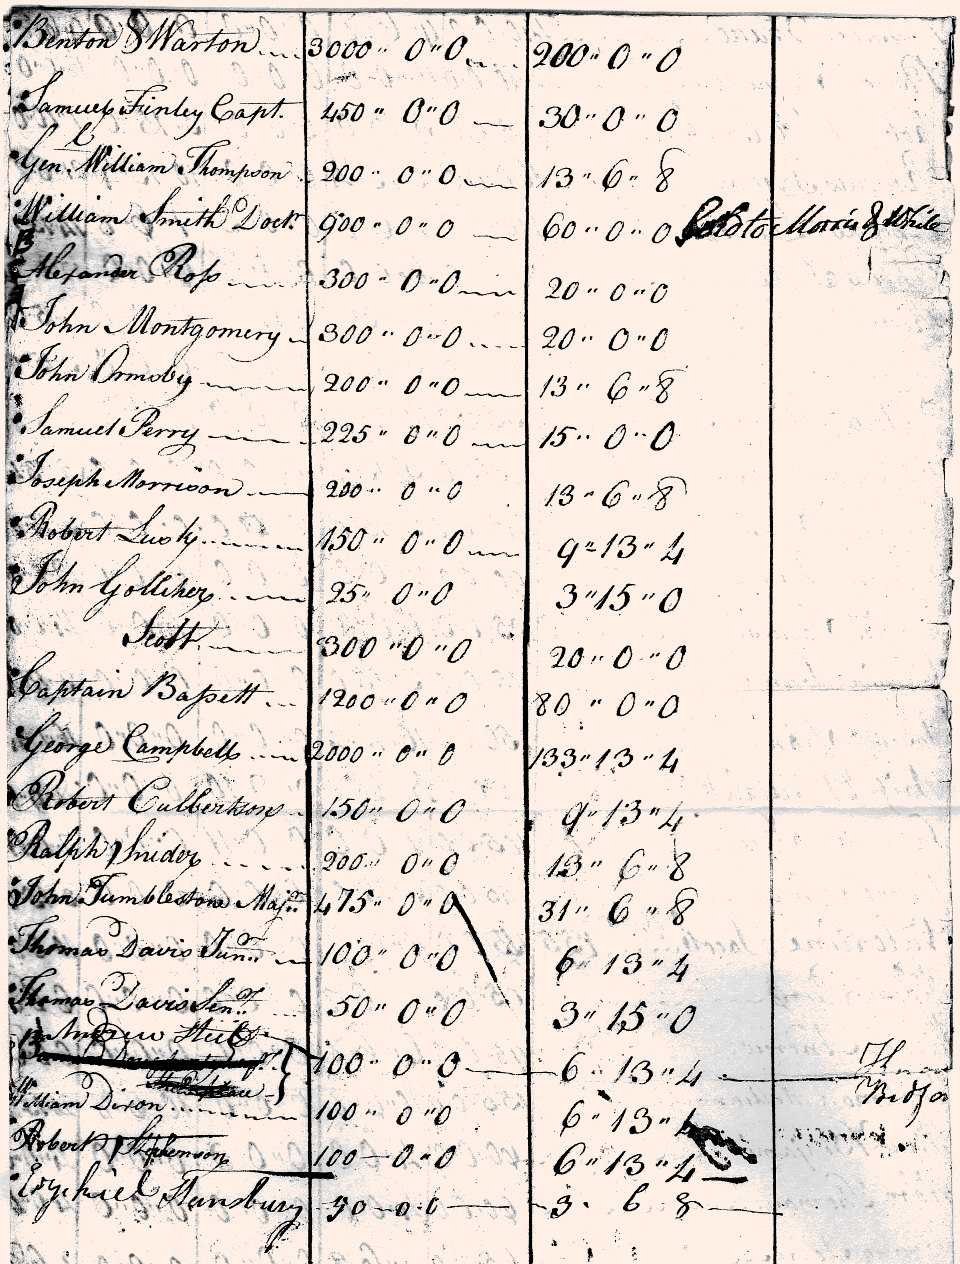 Benton & Warton 3000 " 0 " 0 200 " 0 " 0
Samuel Finley Capt. 450 " 0 " 0 30 " 0 " 0
Genl. William Thompson 200 " 0 " 0 13 " 6 " 8
William Smith Doctr. 900 " 0 " 0 60 " 0 " 0 Sold to Morris & White
Alexander Ross 300 " 0 " 0 20 " 0 " 0
John Montgomery 300 " 0 " 0 20 " 0 " 0
John Ormsby 200 " 0 " 0 13 " 6 " 8
Samuel Perry 225 " 0 " 0 15 " 0 " 0
Joseph Morrison 200 " 0 " 0 13 " 6 " 8
Robert Lusk 150 " 0 " 0 9 " 13 " 4
John Golliher 25 " 0 " 0 3 " 15 " 0
Scott 300 " 0 " 0 20 " 0 " 0
Captain Bassett 1200 " 0 " 0 80 " 0 " 0
George Campbell 2000 " 0 " 0 133 " 13 " 4
Robert Culbertson 150 " 0 " 0 9 " 13 " 4
Ralph Snider 200 " 0 " 0 13 " 6 " 8
John Tumblestone Majr. 475 " 0 " 0 31 " 6 " 8
Thomas Davis Junr. 100 " 0 " 0 6 " 13 " 4
Thomas Davis Senr. 50 " 0 " 0 3 " 15 " 0
Andrew Steel
100 " 0 " 0 6 " 13 " 4
William Dixon 100 " 0 " 0 6 " 13 " 4
Robert Stephenson 100 " 0 " 0 6 " 13 " 4
Ezekiel Stansbury 50 0 0 3 6 8